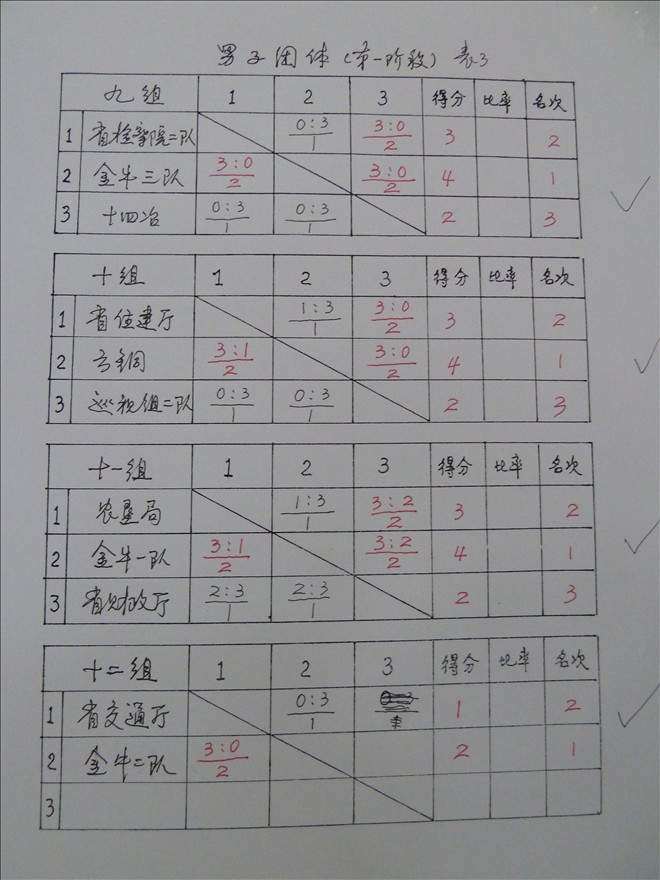 男子团体(第一阶段) 表3
九组 1 2 3 得分 比率 名次
1 省检察院二队 0:3/1 3:0/2 3 2
2 金牛三队 3:0/2 3:0/2 4 1
3 十四冶 0:3/1 0:3/1 2 3
十组 1 2 3 得分 比率 名次
1 省住建厅 1:3/1 3:0/2 3 2
2 云铜 3:1/2 3:0/2 4 1
3 巡视组二队 0:3/1 0:3/1 2 3
十一组 1 2 3 得分 比率 名次
1 农垦局 1:3/1 3:2/2 3 2
2 金牛一队 3:1/2 3:2/2 4 1
3 省财政厅 2:3/1 2:3/1 2 3
十二组 1 2 3 得分 比率 名次
1 省交通厅 0:3/1 1 2
2 金牛二队 3:0/2 2 1
3